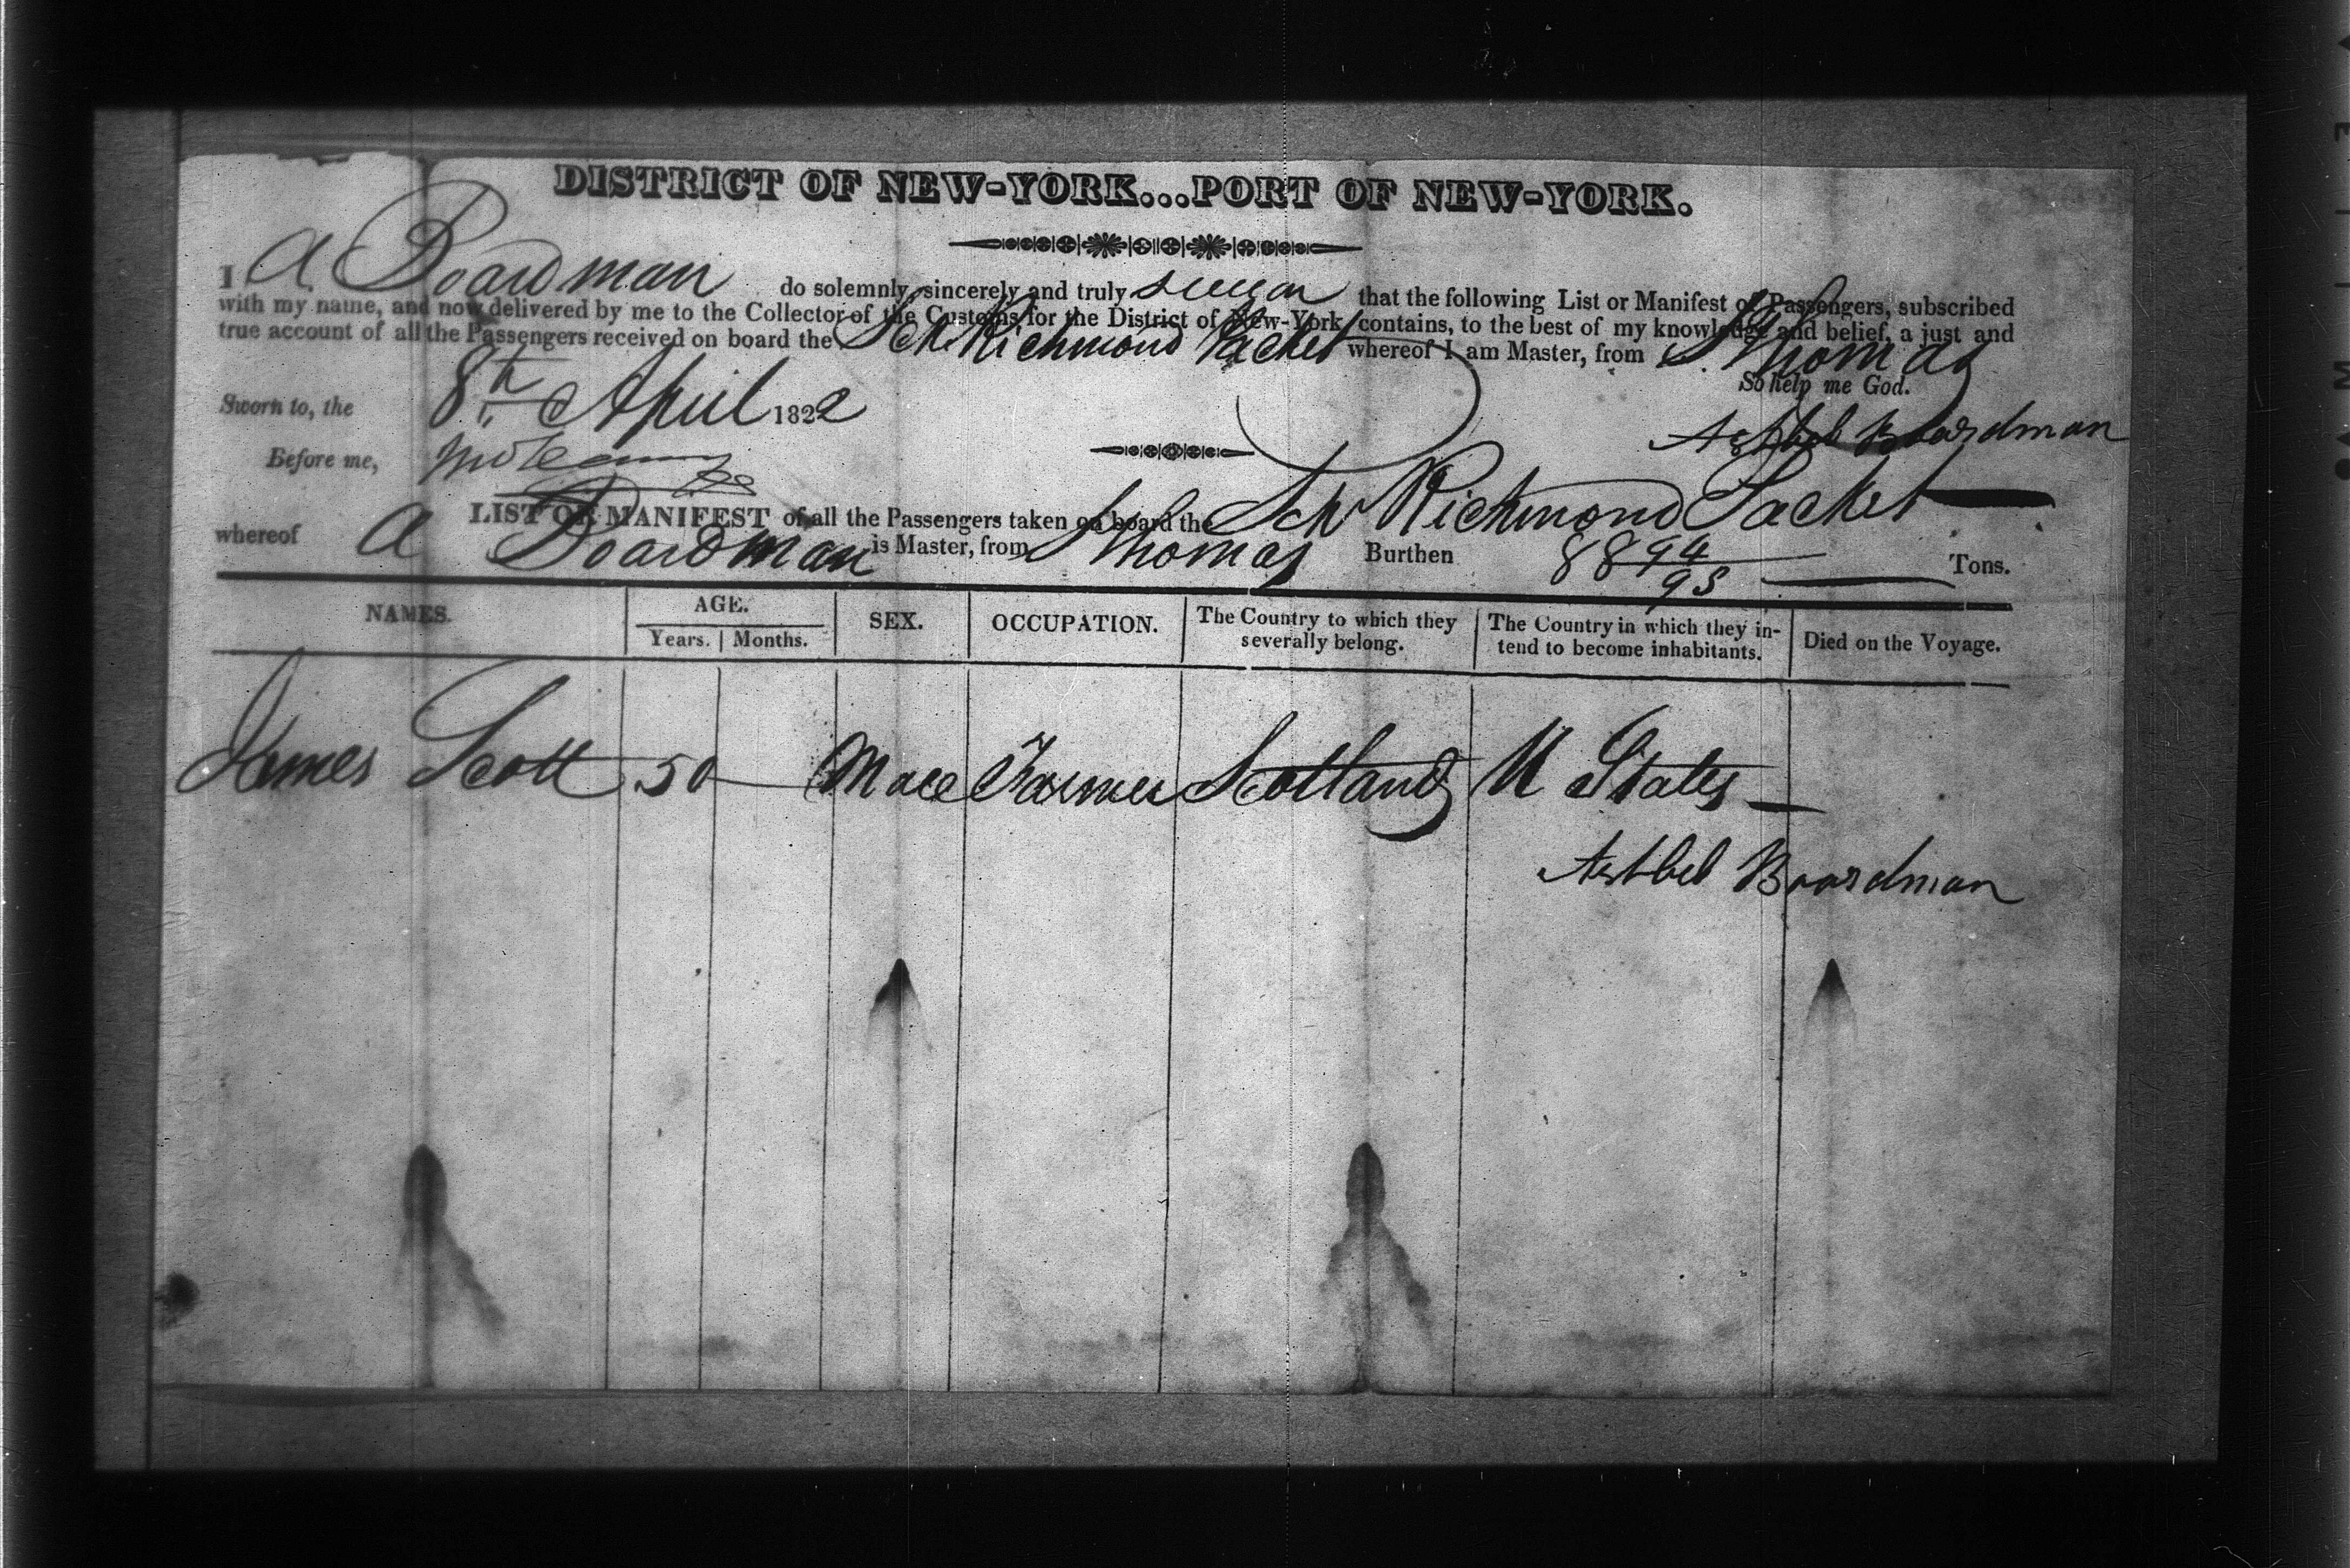 DISTRICT OF NEW-YORK...PORT OF NEW-YORK.
I A. Boardman do solemnly, sincerely and truly swear that the following List or Manifest of Passengers, subscribed
with my name, and now delivered by me to the Collector of the Customs for the District of New-York, contains, to the best of my knowledge and belief, a just and
true account of all the Passengers received on board the Sch Richmond Packet whereof I am Master, from St Thomas
So help me God.
Sworn to, the 8th April 1822
Ashbel Boardman
Before me,
LIST OR MANIFEST of all the Passengers taken on board the Sch Richmond Packet
whereof A Boardman is Master, from St Thomas Burthen 88 94/95 Tons.
NAMES. AGE. SEX. OCCUPATION. The Country to which they severally belong. The Country in which they intend to become inhabitants. Died on the Voyage.
Years. Months.
James Scott 50 Male Farmer Scotland U States
Ashbel Boardman